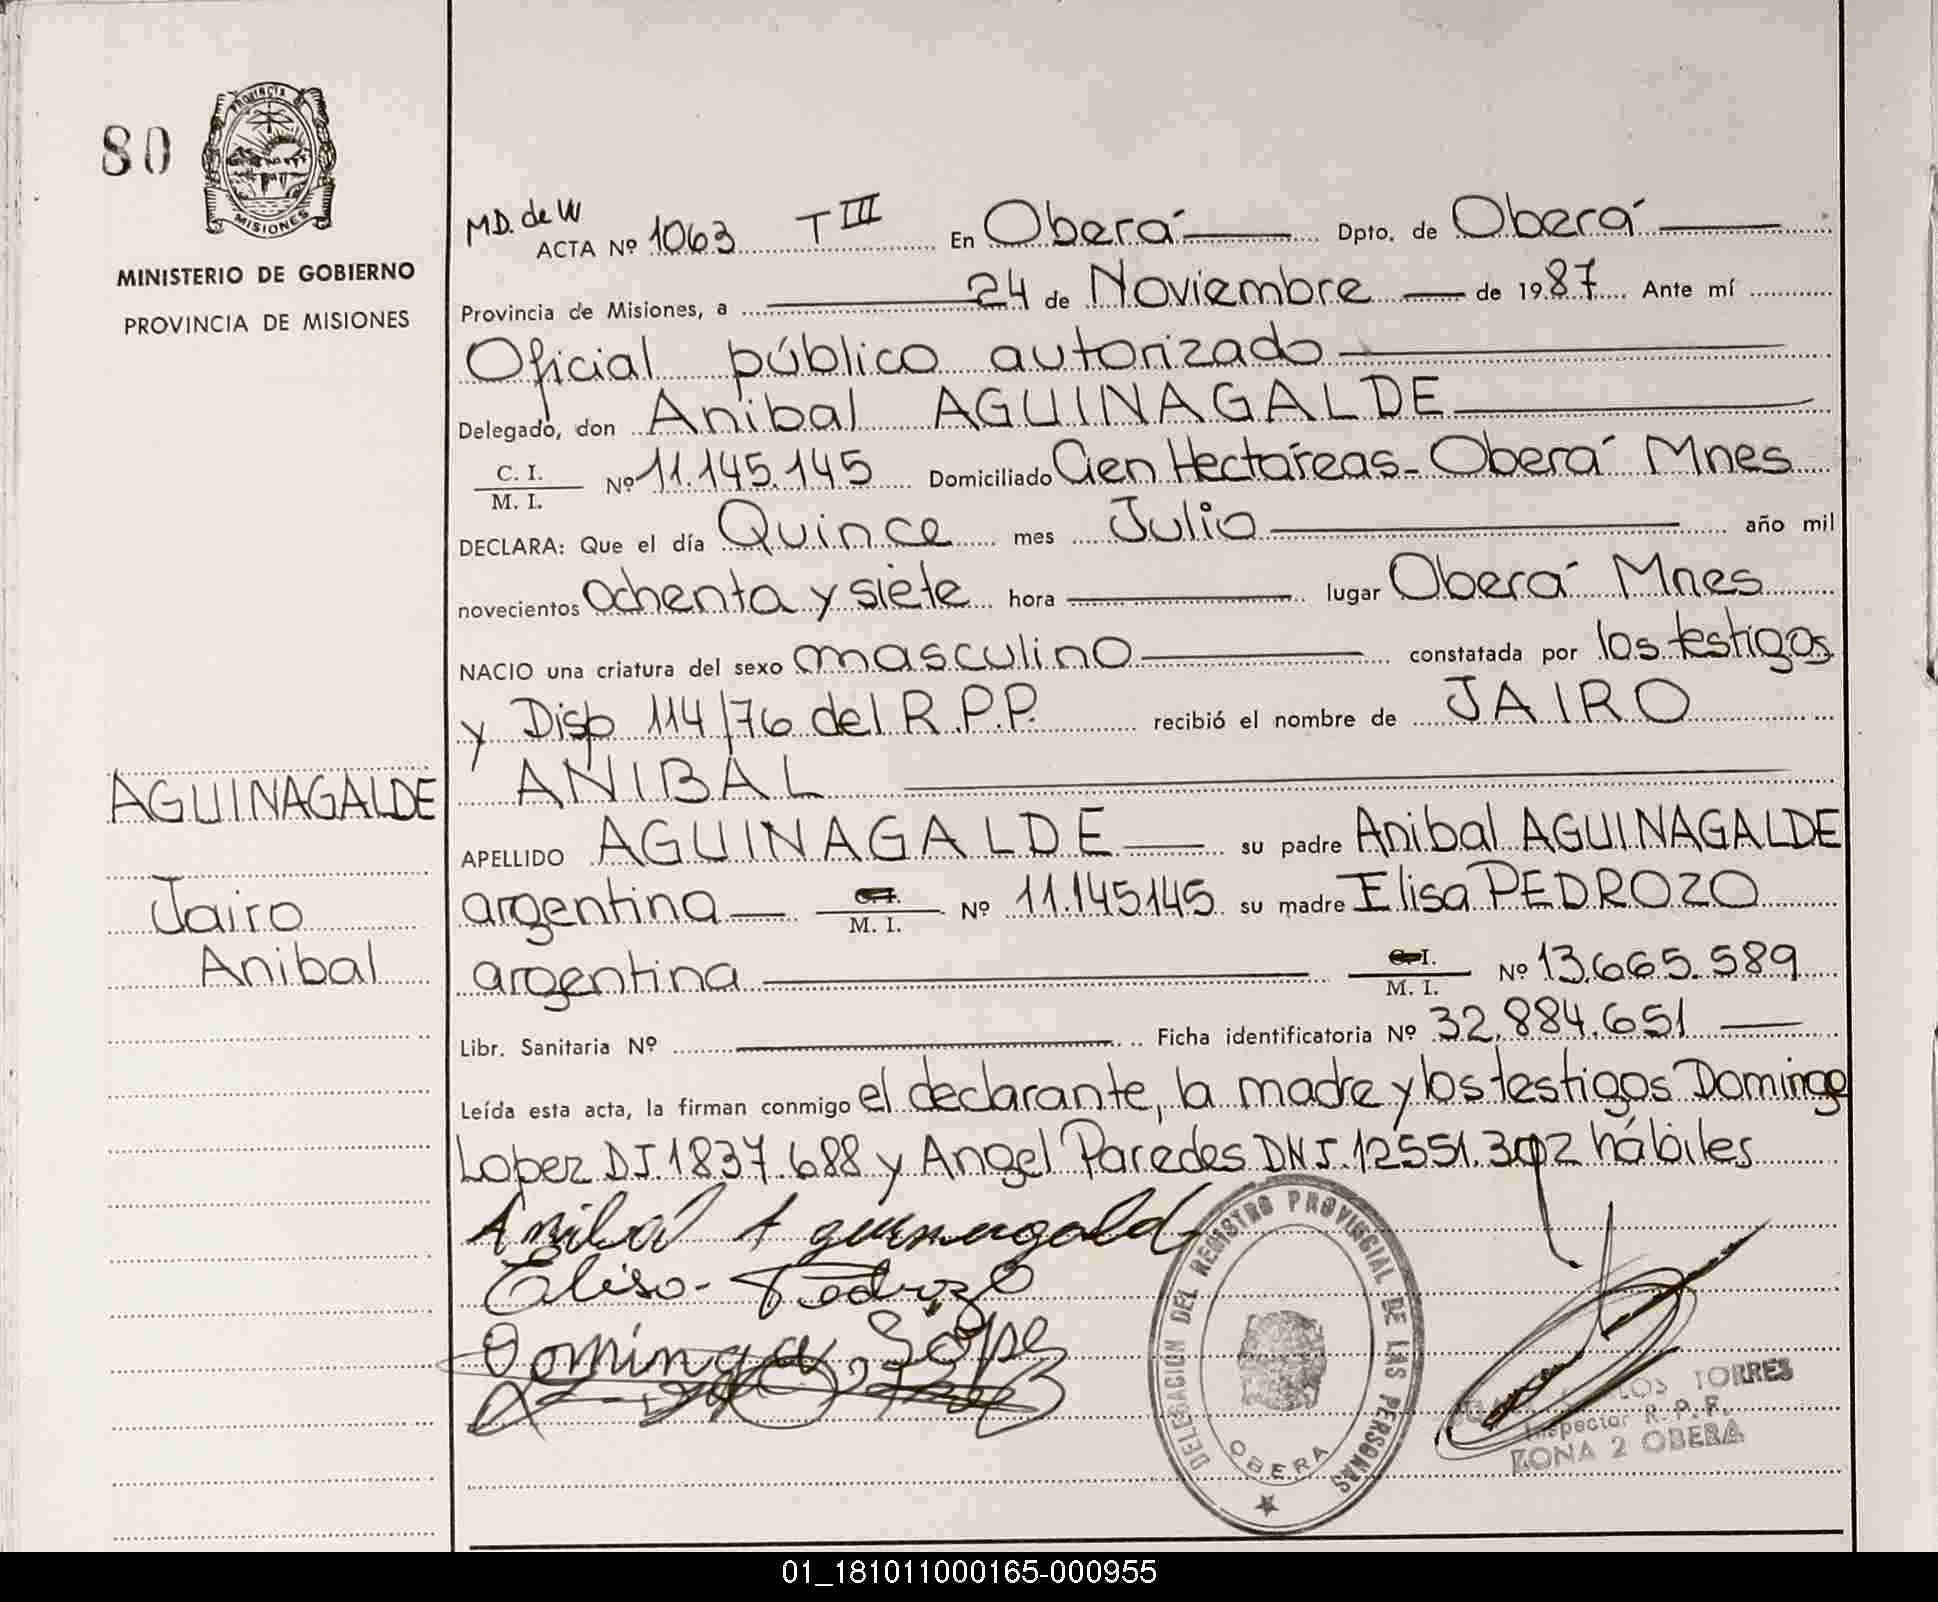 80
PROVINCIA DE
MISIONES
MINISTERIO DE GOBIERNO
PROVINCIA DE MISIONES
AGUINAGALDE
Jairo
Anibal
MD. de W
ACTA Nº 1063 T III En Oberá Dpto. de Oberá
Provincia de Misiones, a 24 de Noviembre de 1987 Ante mí
Oficial público autorizado
Delegado, don Anibal AGUINAGALDE
C. I.
M. I. Nº 11.145.145 Domiciliado Cien Hectáreas - Oberá Mnes
DECLARA: Que el día Quince mes Julio año mil
novecientos Ochenta y siete hora lugar Oberá Mnes
NACIO una criatura del sexo masculino constatada por los testigos
y Disp 114/76 del R.P.P. recibió el nombre de JAIRO
ANIBAL
APELLIDO AGUINAGALDE su padre Anibal AGUINAGALDE
argentina C. I. M. I. Nº 11.145145 su madre Elisa PEDROZO
argentina C. I. M. I. Nº 13.665.589
Libr. Sanitaria Nº Ficha identificatoria Nº 32.884.651
Leída esta acta, la firman conmigo el declarante, la madre y los testigos Domingo
Lopez DI. 1837.688 y Angel Paredes DNI. 12551.302 hábiles
Anibal Aguinagald
Elisa Pedrozo
Domingo López
DELEGACION DEL REGISTRO PROVINCIAL DE LAS PERSONAS
OBERA
LOS TORRES
Inspector R. P. P.
ZONA 2 OBERA
01_181011000165-000955